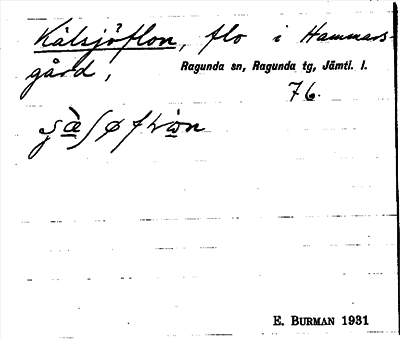 Kälsjöflon, flo i Hammars-
gård, Ragunda sn, Ragunda tg, Jämtl. l.
76.
E. BURMAN 1931